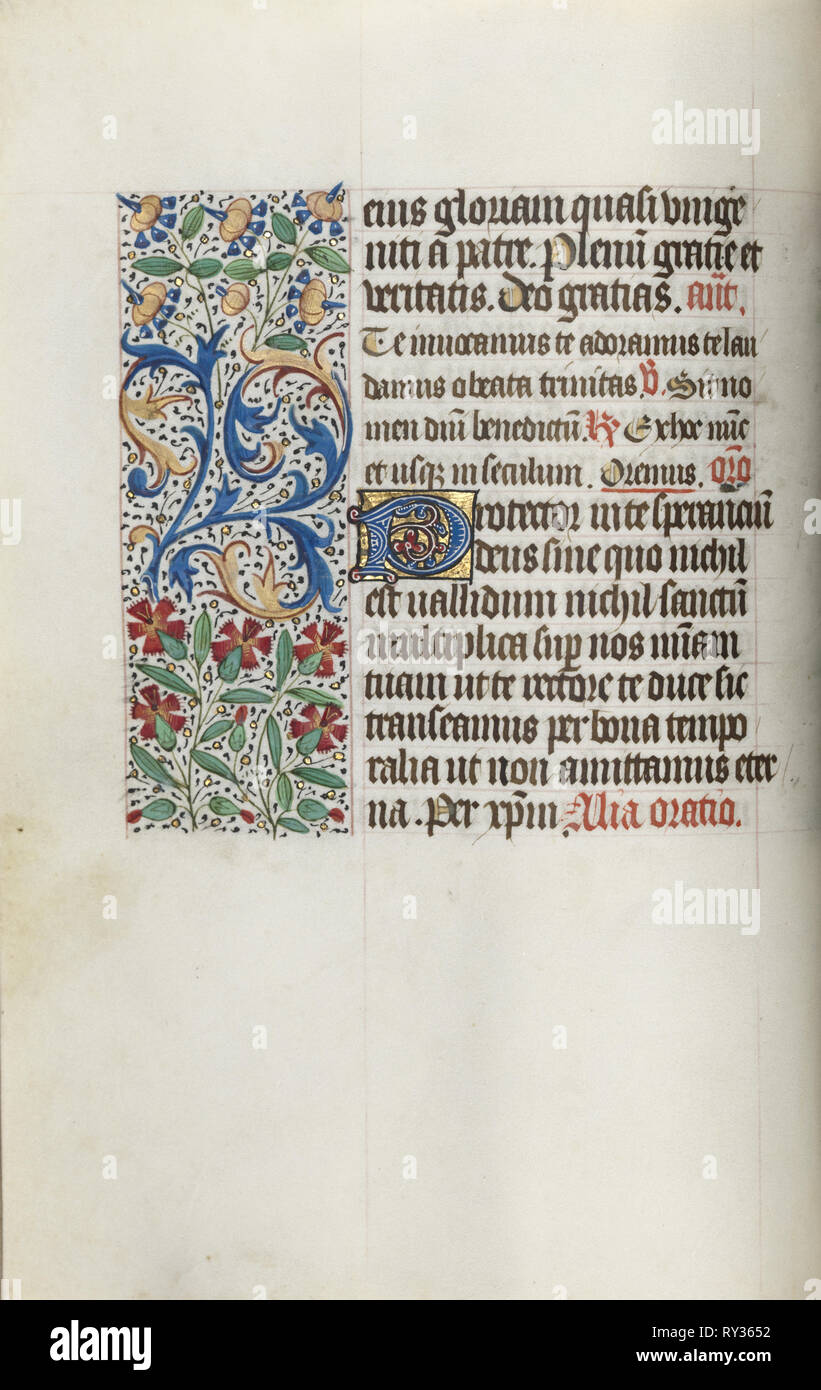 eius gloriam quasi vnige
niti a patre. Plenū gratie et
veritatis. Deo gratias. añt.
Te inuocamus te adoramus te lau
damus o beata trinitas. V̄. Sit no
men dn̄i benedictū. R̄ Ex hoc nūc
et usqꝫ in seculum. Oremus. orō
Protector in te sperancium̄
deus sine quo nichil
est uallidum nichil sanctū
multiplica suꝑ nos mīam
tuam ut te rectore te duce sic
transeamus per bona tempo
ralia ut non amittamus eter
na. Per xp̄m Alia oratio.
alamy
Image ID: RY3652
www.alamy.com